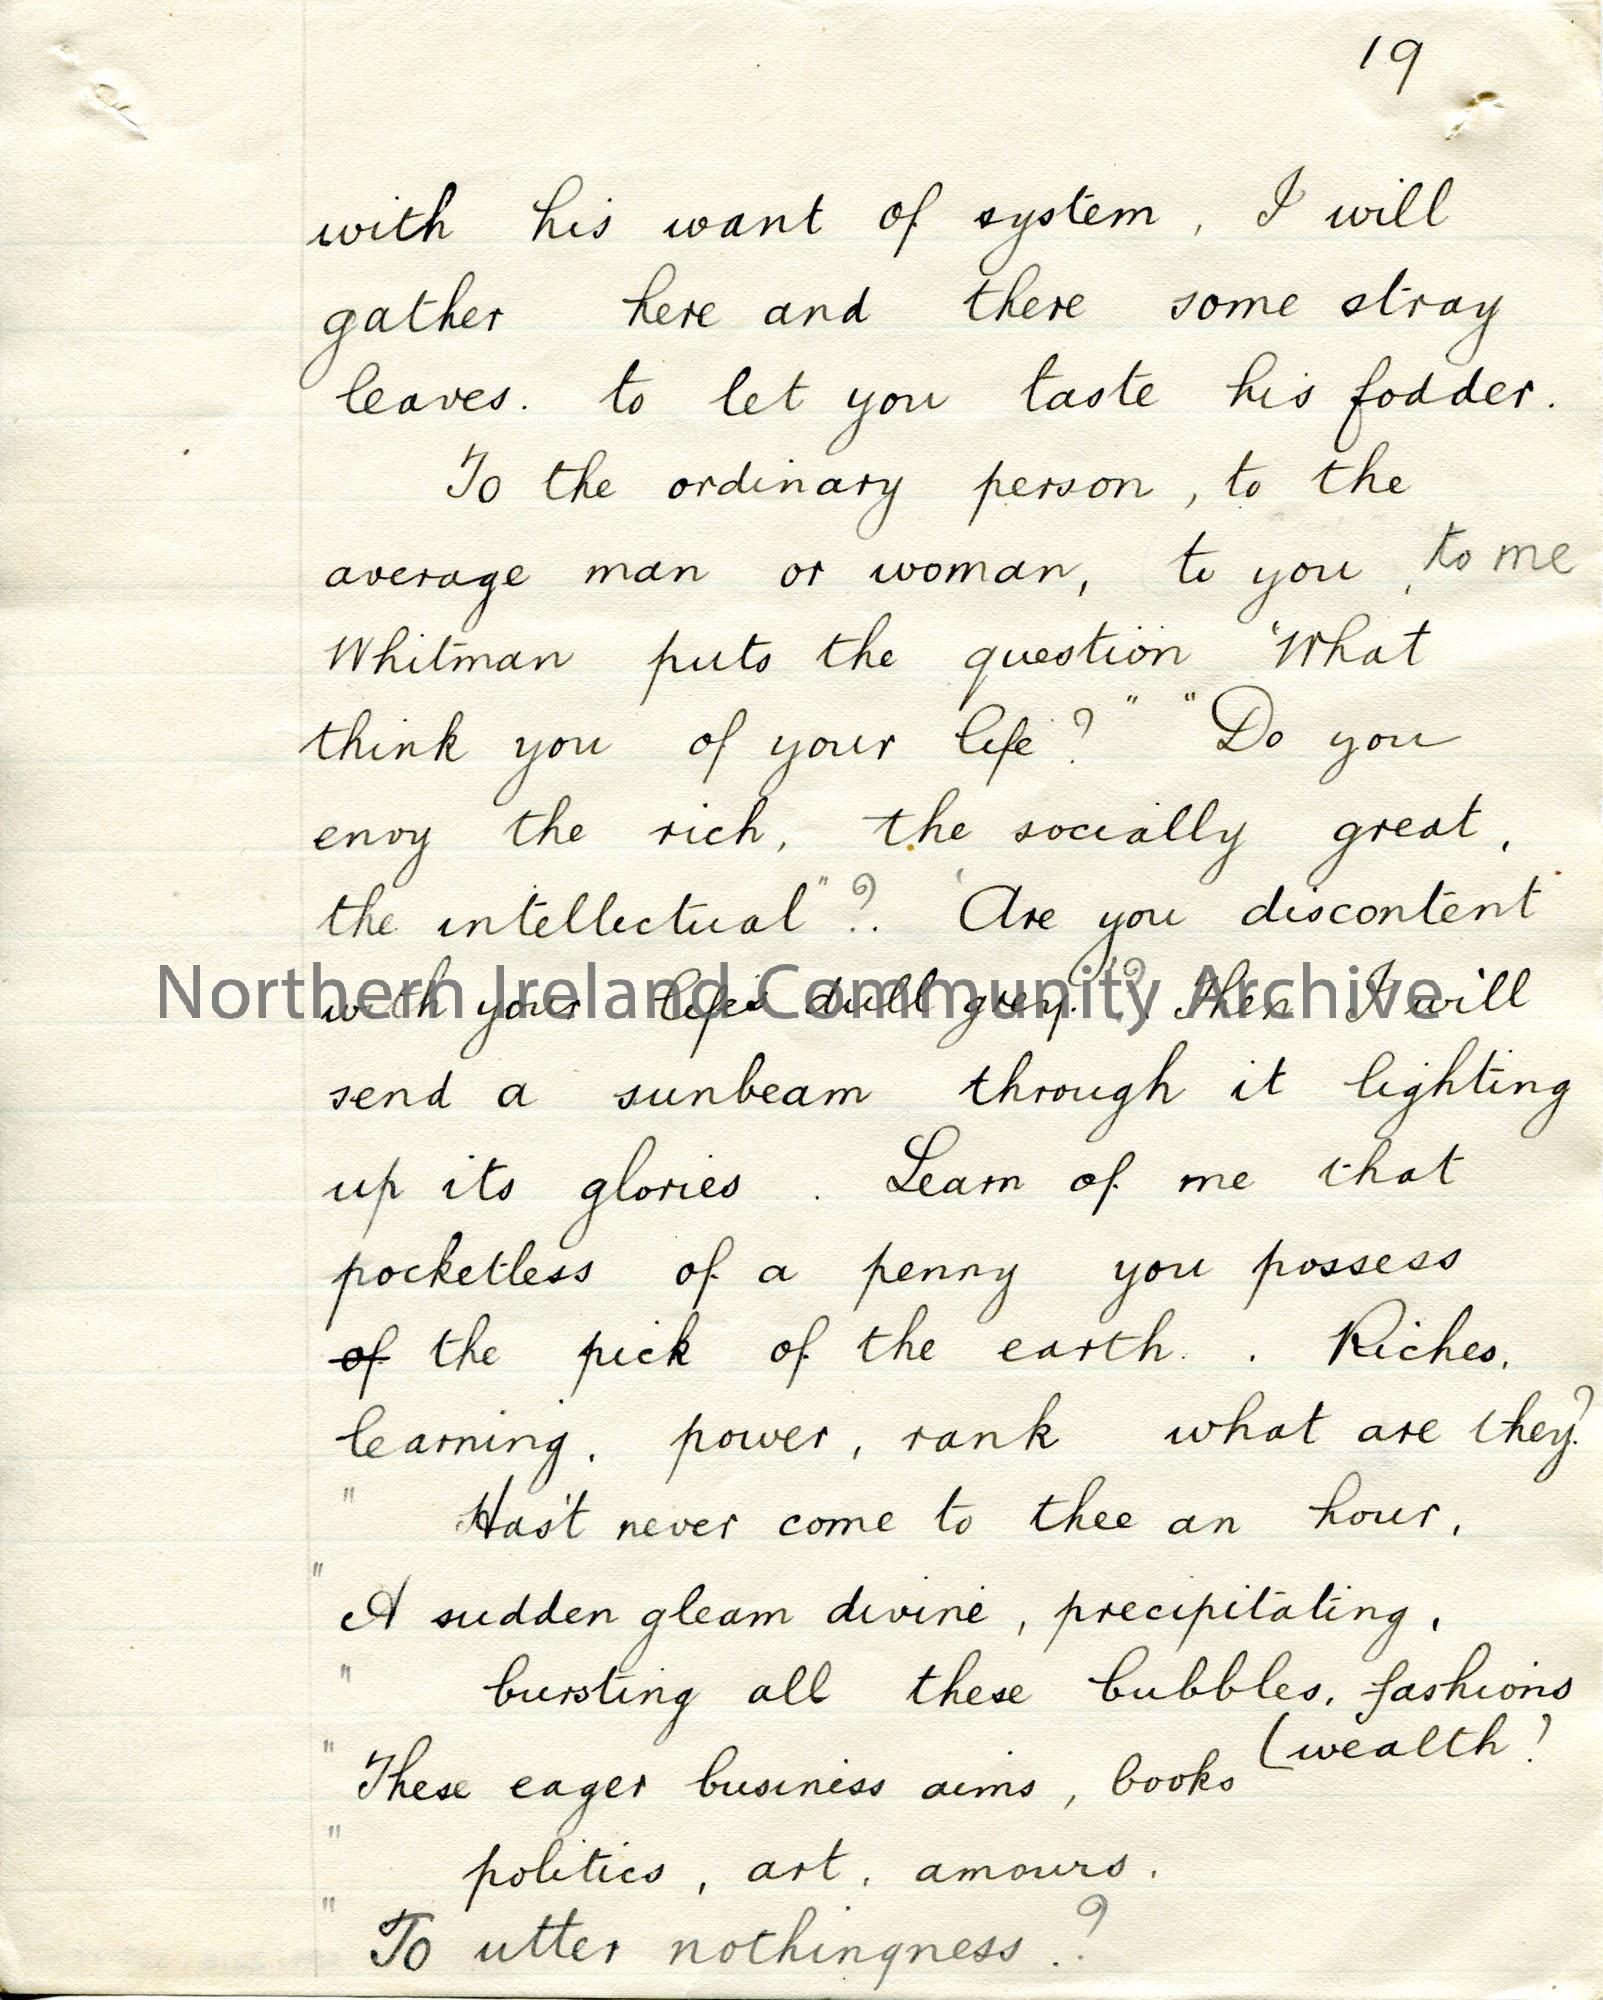 19
with his want of system, I will
gather here and there some stray
leaves. to let you taste his fodder.
To the ordinary person, to the
average man or woman, to you, to me
Whitman puts the question 'What
think you of your life?" "Do you
envy the rich, the socially great,
the intellectual"?. 'Are you discontent
with your life's dull grey?'? Then I will
Northern Ireland Community Archive
send a sunbeam through it lighting
up its glories. Learn of me that
pocketless of a penny you possess
of the pick of the earth. . Riches,
learning, power, rank what are they?
" Has't never come to thee an hour,
" A sudden gleam divine, precipitating,
" bursting all these bubbles, fashions
(wealth?
" These eager business aims, books
" politics, art, amours.
" To utter nothingness.?